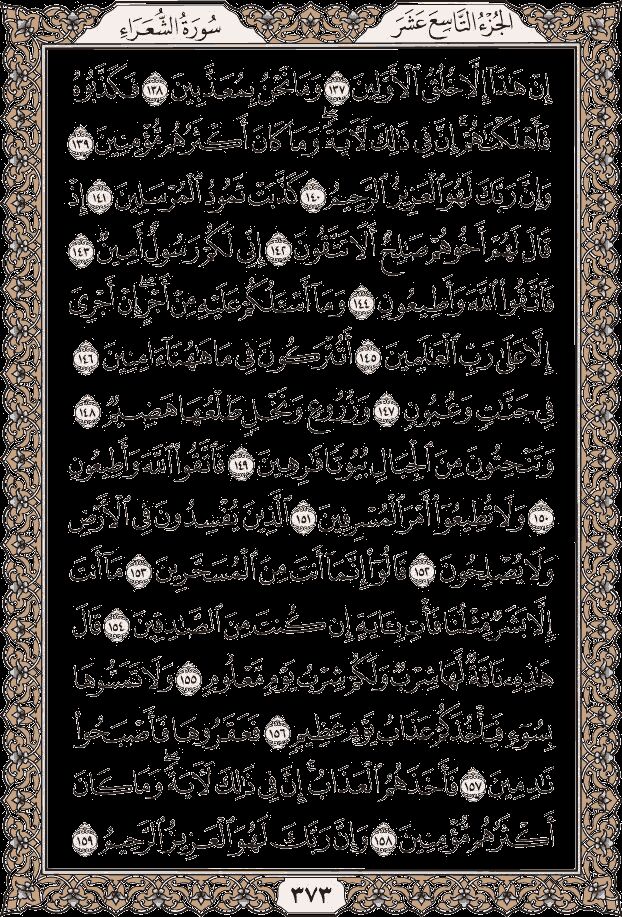 الجُزْءُ التَّاسِعَ عَشَرَ
سُورَةُ الشُّعَرَاءِ
إِنْ هَٰذَآ إِلَّا خُلُقُ ٱلْأَوَّلِينَ ١٣٧ وَمَا نَحْنُ بِمُعَذَّبِينَ ١٣٨ فَكَذَّبُوهُ
فَأَهْلَكْنَٰهُمْ إِنَّ فِى ذَٰلِكَ لَءَايَةً وَمَا كَانَ أَكْثَرُهُم مُّؤْمِنِينَ ١٣٩
وَإِنَّ رَبَّكَ لَهُوَ ٱلْعَزِيزُ ٱلرَّحِيمُ ١٤٠ كَذَّبَتْ ثَمُودُ ٱلْمُرْسَلِينَ ١٤١ إِذْ
قَالَ لَهُمْ أَخُوهُمْ صَٰلِحٌ أَلَا تَتَّقُونَ ١٤٢ إِنِّى لَكُمْ رَسُولٌ أَمِينٌ ١٤٣
فَٱتَّقُوا۟ ٱللَّهَ وَأَطِيعُونِ ١٤٤ وَمَآ أَسْـَٔلُكُمْ عَلَيْهِ مِنْ أَجْرٍ إِنْ أَجْرِىَ
إِلَّا عَلَىٰ رَبِّ ٱلْعَٰلَمِينَ ١٤٥ أَتُتْرَكُونَ فِى مَا هَٰهُنَآ ءَامِنِينَ ١٤٦
فِى جَنَّٰتٍ وَعُيُونٍ ١٤٧ وَزُرُوعٍ وَنَخْلٍ طَلْعُهَا هَضِيمٌ ١٤٨
وَتَنْحِتُونَ مِنَ ٱلْجِبَالِ بُيُوتًا فَٰرِهِينَ ١٤٩ فَٱتَّقُوا۟ ٱللَّهَ وَأَطِيعُونِ
١٥٠ وَلَا تُطِيعُوٓا۟ أَمْرَ ٱلْمُسْرِفِينَ ١٥١ ٱلَّذِينَ يُفْسِدُونَ فِى ٱلْأَرْضِ
وَلَا يُصْلِحُونَ ١٥٢ قَالُوٓا۟ إِنَّمَآ أَنتَ مِنَ ٱلْمُسَحَّرِينَ ١٥٣ مَآ أَنتَ
إِلَّا بَشَرٌ مِّثْلُنَا فَأْتِ بِـَٔايَةٍ إِن كُنتَ مِنَ ٱلصَّٰدِقِينَ ١٥٤ قَالَ
هَٰذِهِۦ نَاقَةٌ لَّهَا شِرْبٌ وَلَكُمْ شِرْبُ يَوْمٍ مَّعْلُومٍ ١٥٥ وَلَا تَمَسُّوهَا
بِسُوٓءٍ فَيَأْخُذَكُمْ عَذَابُ يَوْمٍ عَظِيمٍ ١٥٦ فَعَقَرُوهَا فَأَصْبَحُوا۟
نَٰدِمِينَ ١٥٧ فَأَخَذَهُمُ ٱلْعَذَابُ إِنَّ فِى ذَٰلِكَ لَءَايَةً وَمَا كَانَ
أَكْثَرُهُم مُّؤْمِنِينَ ١٥٨ وَإِنَّ رَبَّكَ لَهُوَ ٱلْعَزِيزُ ٱلرَّحِيمُ ١٥٩
٣٧٣